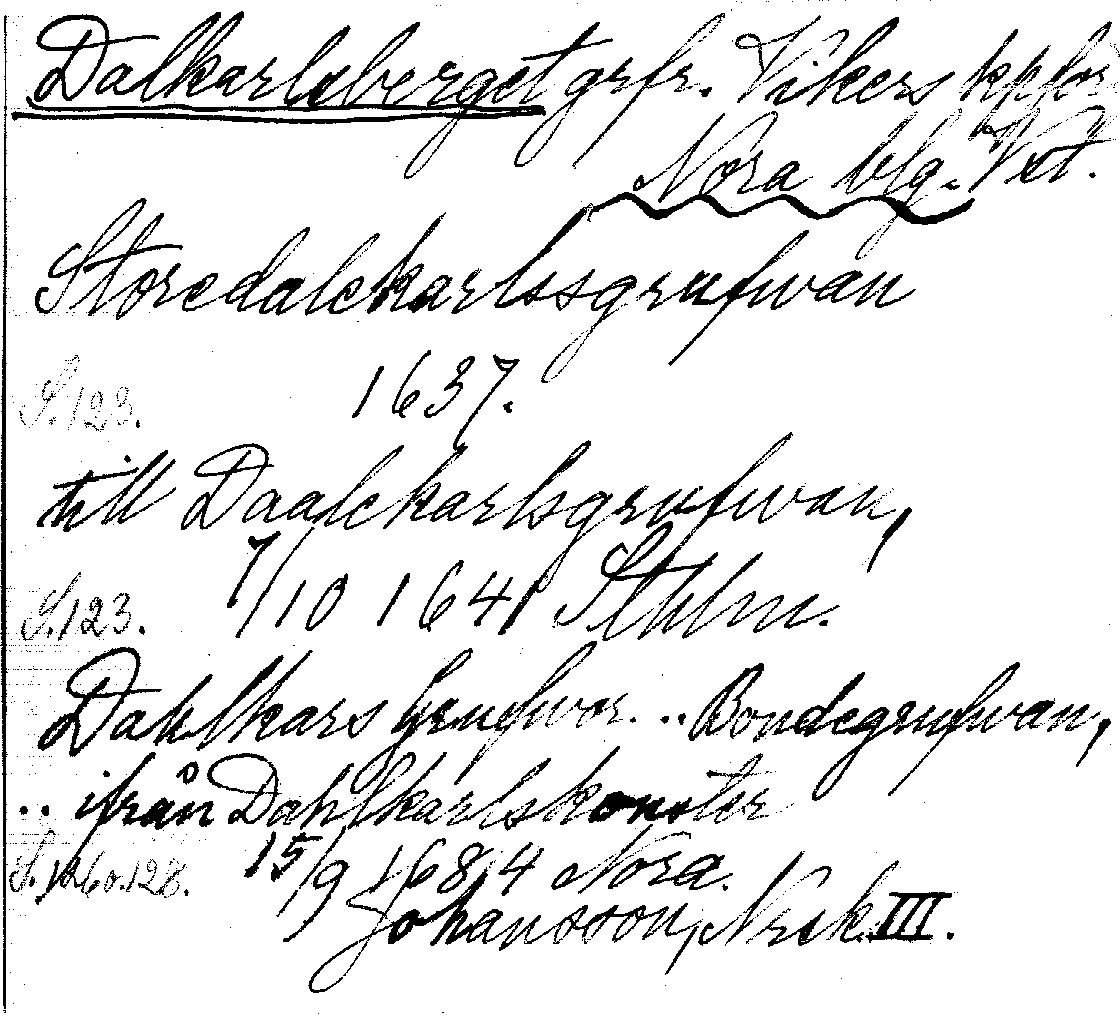 Dalkarlsberget grfr. Vikers kpförs
Nora blg. Vstl.
Storedalckarlssgrufwan
S. 123. 1637.
till Daalckarlsgrufwan,
S. 123. 7/10 1641 Sthlm.
Dahlkars Grufwor. .. Bondegrufwan,
.. ifrån Dahlkarlskonster
S. 126 o. 128. 15/9 1684 Nora.
Johansson, Nrsk. III.